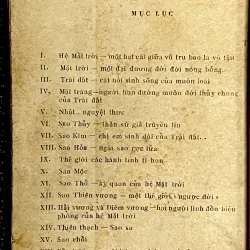 MỤC LỤC
I. Hệ Mặt trời — một hạt cát giữa vũ trụ bao la vô tận
II. Mặt trời — một đại dương đời đời nóng bỏng.
III. Trái đất — cái nôi sinh sống của muôn loài
IV. Mặt trăng — người bạn đường muôn đời thủy chung
của Trái đất
V. Nhật, nguyệt thực
VI. Sao Thủy — thần sứ giả truyền tin
VII. Sao Kim — chị em sinh đôi của Trái đất..
VIII. Sao Hỏa — ngôi sao rực lửa
IX. Thế giới các hành tinh tí hon
X. Sao Mộc
XI. Sao Thổ — kỳ quan của hệ Mặt trời
XII. Sao Thiên vương — một thế giới «ngược đời»
XIII. Hải vương và Diêm vương — hai người lính đồn biên
phòng của hệ Mặt trời
XIV. Thiên thạch — Sao sa
XV. Sao chổi